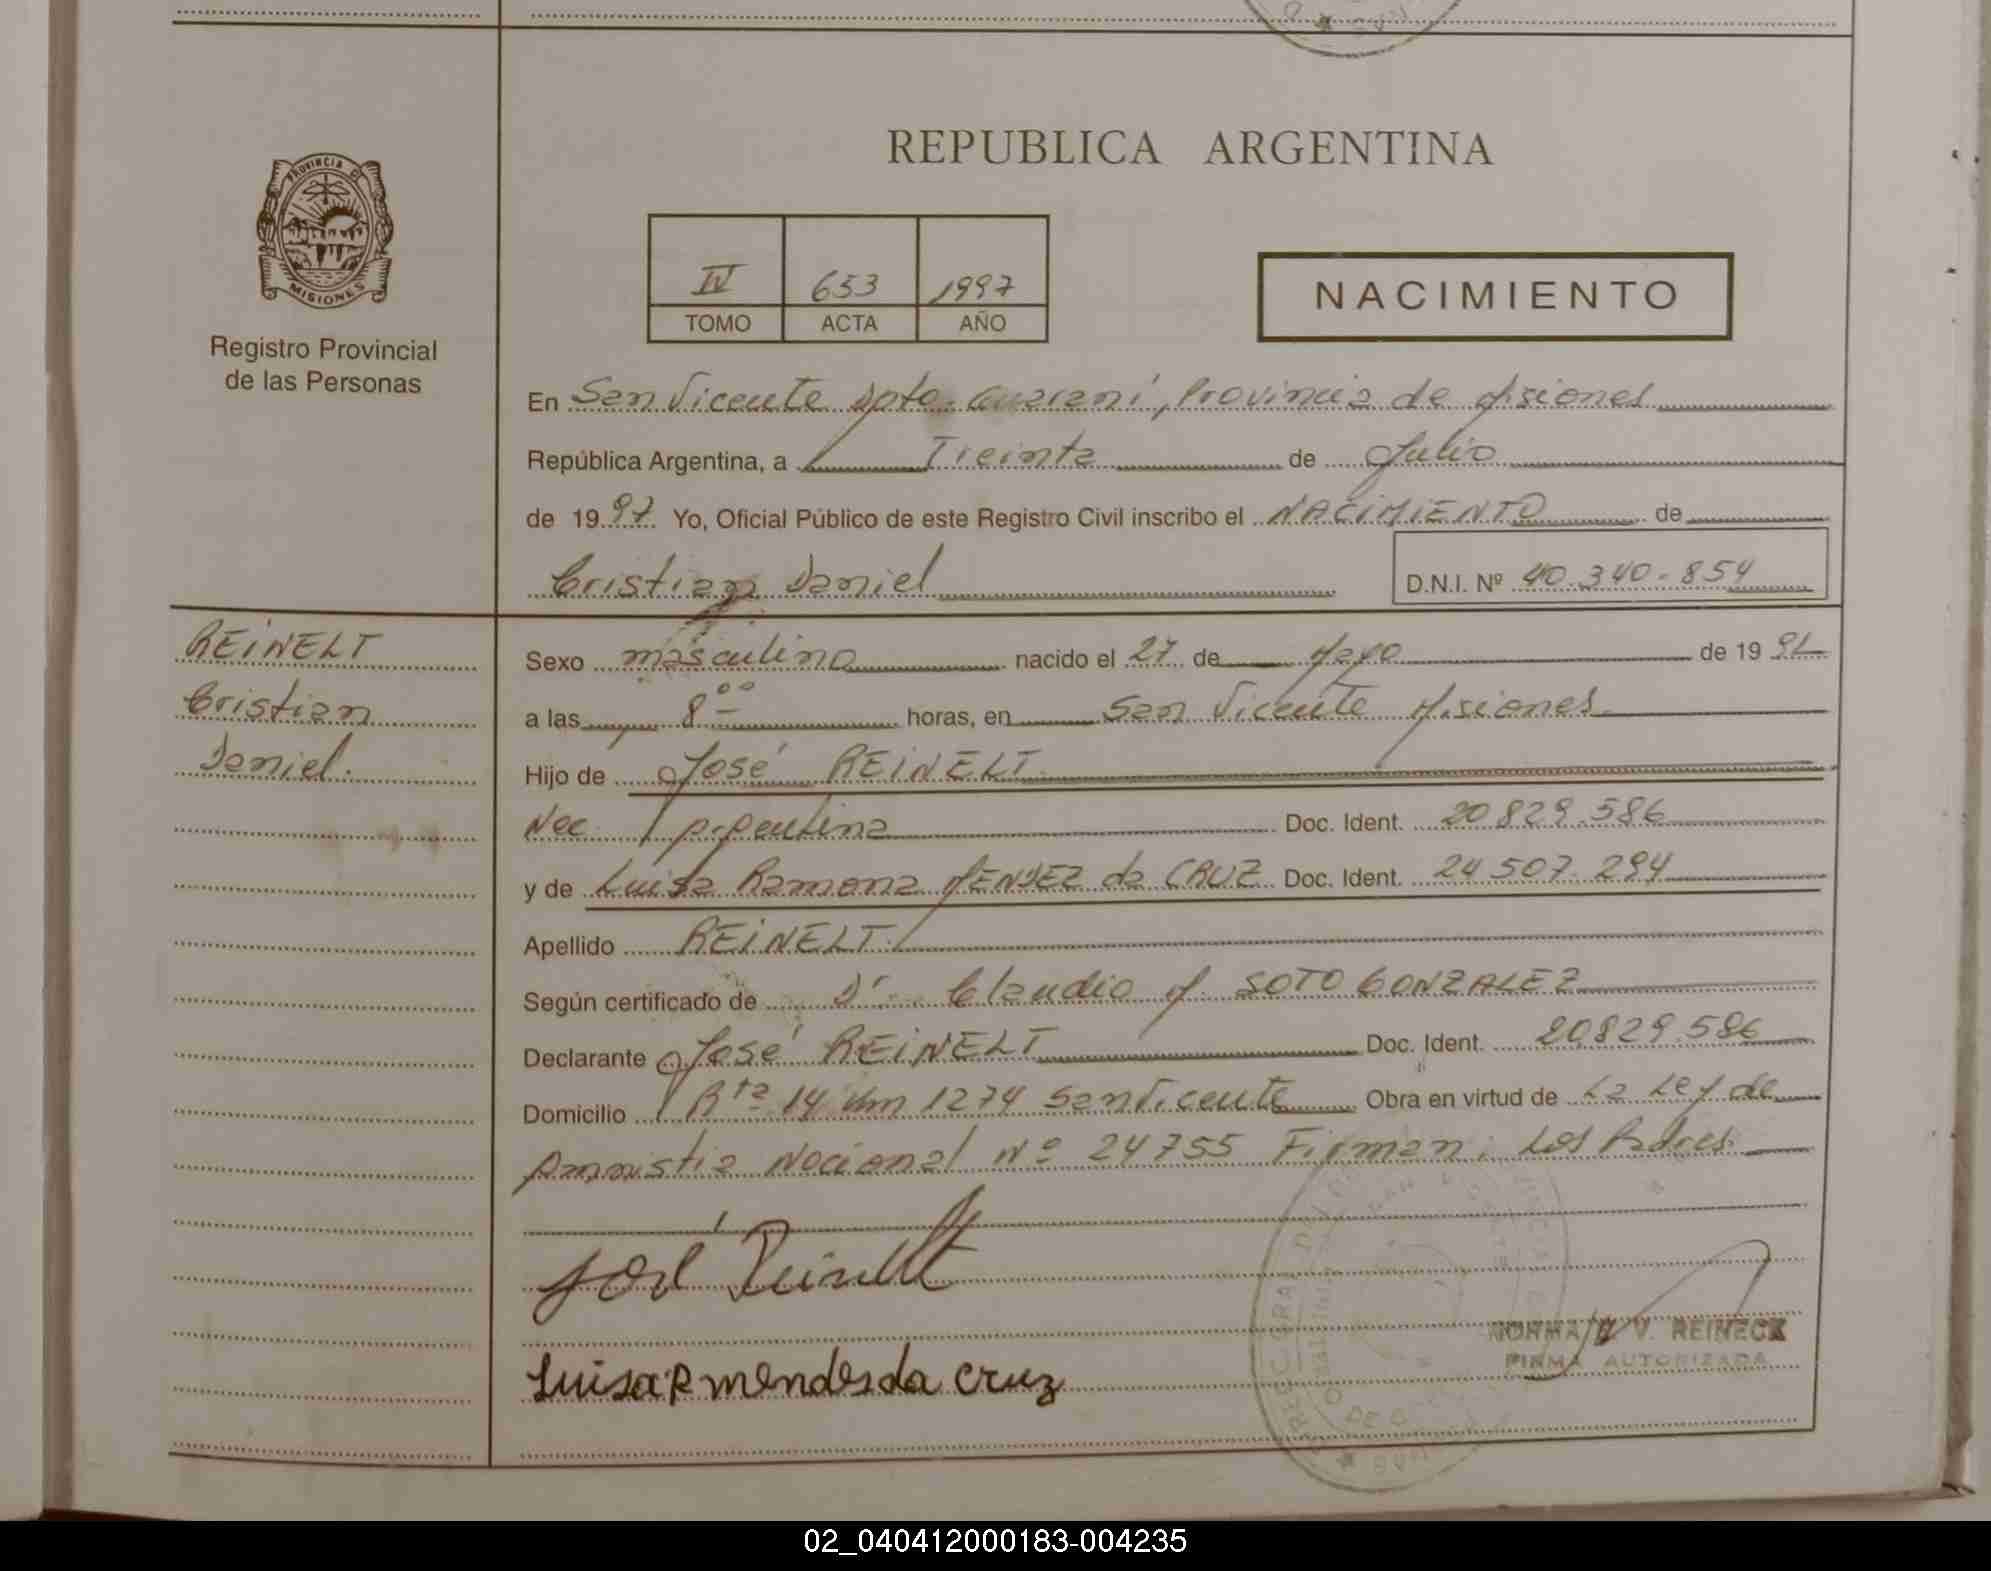 REPUBLICA ARGENTINA
PROVINCIA DE
MISIONES
Registro Provincial
de las Personas
IV 653 1997
TOMO ACTA AÑO
NACIMIENTO
En San Vicente Dpto. Guaraní, Provincia de Misiones
República Argentina, a Treinta de Julio
de 1997 Yo, Oficial Público de este Registro Civil inscribo el NACIMIENTO de
Cristian Daniel D.N.I. Nº 40.340.854
REINELT
Cristian
Daniel.
Sexo masculino nacido el 27 de Mayo de 19
a las 8 00 horas, en San Vicente Misiones.
Hijo de José REINELT
Nac. Argentina Doc. Ident. 20 829.586
y de Luisa Ramona MENDEZ da CRUZ Doc. Ident. 24 507.294
Apellido REINELT.
Según certificado de Dr. Claudio M. SOTO GONZALEZ
Declarante José REINELT Doc. Ident. 20829.586
Domicilio Rta 14 Km 1274 San Vicente Obra en virtud de La Ley de
Amnistia Nacional Nº 24755 Firman: Los Padres.
José Reinelt
Luisa R mendes da cruz
NORMA V. REINECK
FIRMA AUTORIZADA
02_040412000183-004235